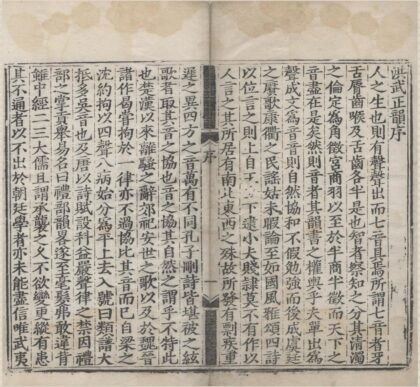 洪武正韻序
人之生也則有聲聲出而七音具焉所謂七音者牙
舌脣齒喉及舌齒各半是也智者察知之分其清濁
之倫定為角徵宮商羽以至於半商半徵而天下之
音盡在是矣然則音者其韻書之權輿乎夫單出為
聲成文為音音則自然協和不假勉強而後成虞廷
之賡歌康衢之民謠姑未暇論至如國風雅頌四詩
以位言之則上自王下逮小夫賤隸莫不有作以
人言之其所居有南北東西之殊故所發有剽疾重
序 一
遲之異四方之音萬有不同孔子刪詩皆堪被之絃
歌者取其音之協也音之協其自然之謂乎不特此
也楚漢以來離騷之辭郊祀安世之歌以及於魏晉
諸作曷嘗拘於一律亦不過協比其音而已自梁之
沈約拘以四聲八病始分為平上去入號曰類譜大
抵多吳音也及唐以詩賦設科益嚴聲律之禁因禮
部之掌貢舉易名曰禮部韻略遂至毫髮弗敢違背
雖中經二三大儒且謂承襲之久不欲變更縱有患
其不通者以不出於朝廷學者亦未能盡信唯武夷